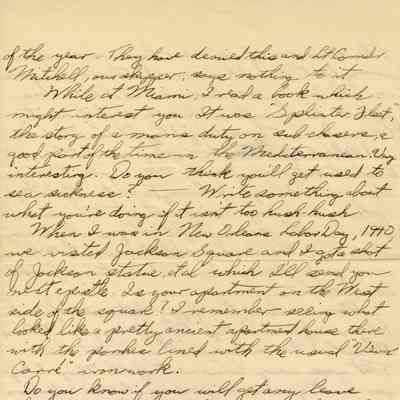 of the year. They have denied this and Lt Comdr
Mitchell, our skipper, says nothing to it.
While at Miami, I read a book which
might interest you. It was "Splinter Fleet",
the story of a mans duty on sub chasers, a
good part of the time in the Mediterranean. Very
interesting. Do you think you'll get used to
sea sickness? — Write something about
what you're doing if it isn't too hush-hush
When I was in New Orleans Labor Day, 1940
we visited Jackson Square and I got a shot
of Jackson statue, et al which I'll send you
next epistle. Is your apartment on the West
side of the square? I remember seeing what
looked like a pretty ancient apartment house there
with the porches lined with the usual "Vieux
Carré" ironwork.
Do you know if you will get any leave